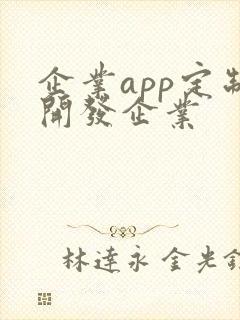 企業app定制
開發企業
林達永 金光鉉